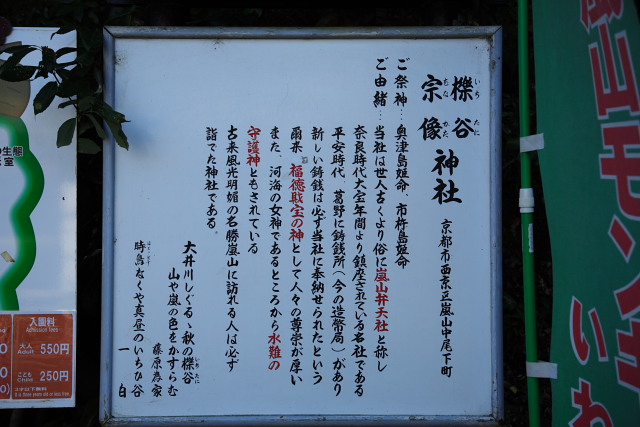 櫟谷
いち たに
宗像
むな かた
神社
京都市西京区嵐山中尾下町
ご祭神…奥津島姫命、市杵島姫命
ご由緒…当社は世人古くより俗に嵐山弁天社と称し
奈良時代大宝年間より鎮座されている名社である
平安時代、葛野に鋳銭所(今の造幣局)があり
新しい鋳銭は必ず当社に奉納せられたという
爾来、福徳財宝の神として人々の尊崇が厚い
また、河海の女神であるところから水難の
守護神ともされている
古来風光明媚の名勝嵐山に訪れる人は必ず
詣でた神社である。
大井川しぐるゝ秋の櫟谷
いちたに
山や嵐の色をかすらむ
藤原為家
時鳥なくや真昼のいちひ谷
ほととぎす
一白
の生態
室
入園料
Admission fees
大人
Adult
550円
こども
Child
250円